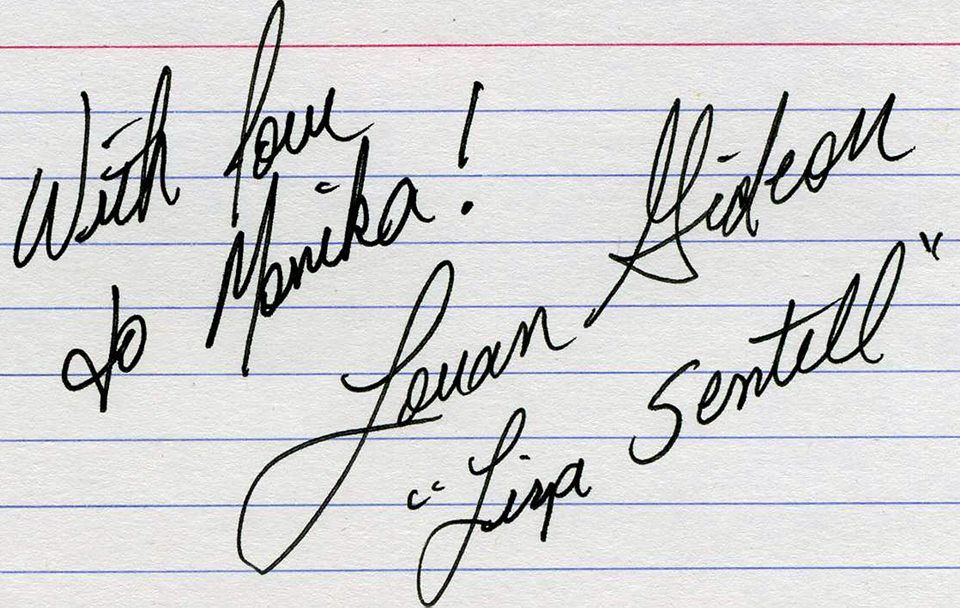 With Love
to Monika!
Louan Gideon
"Liza Sentell"